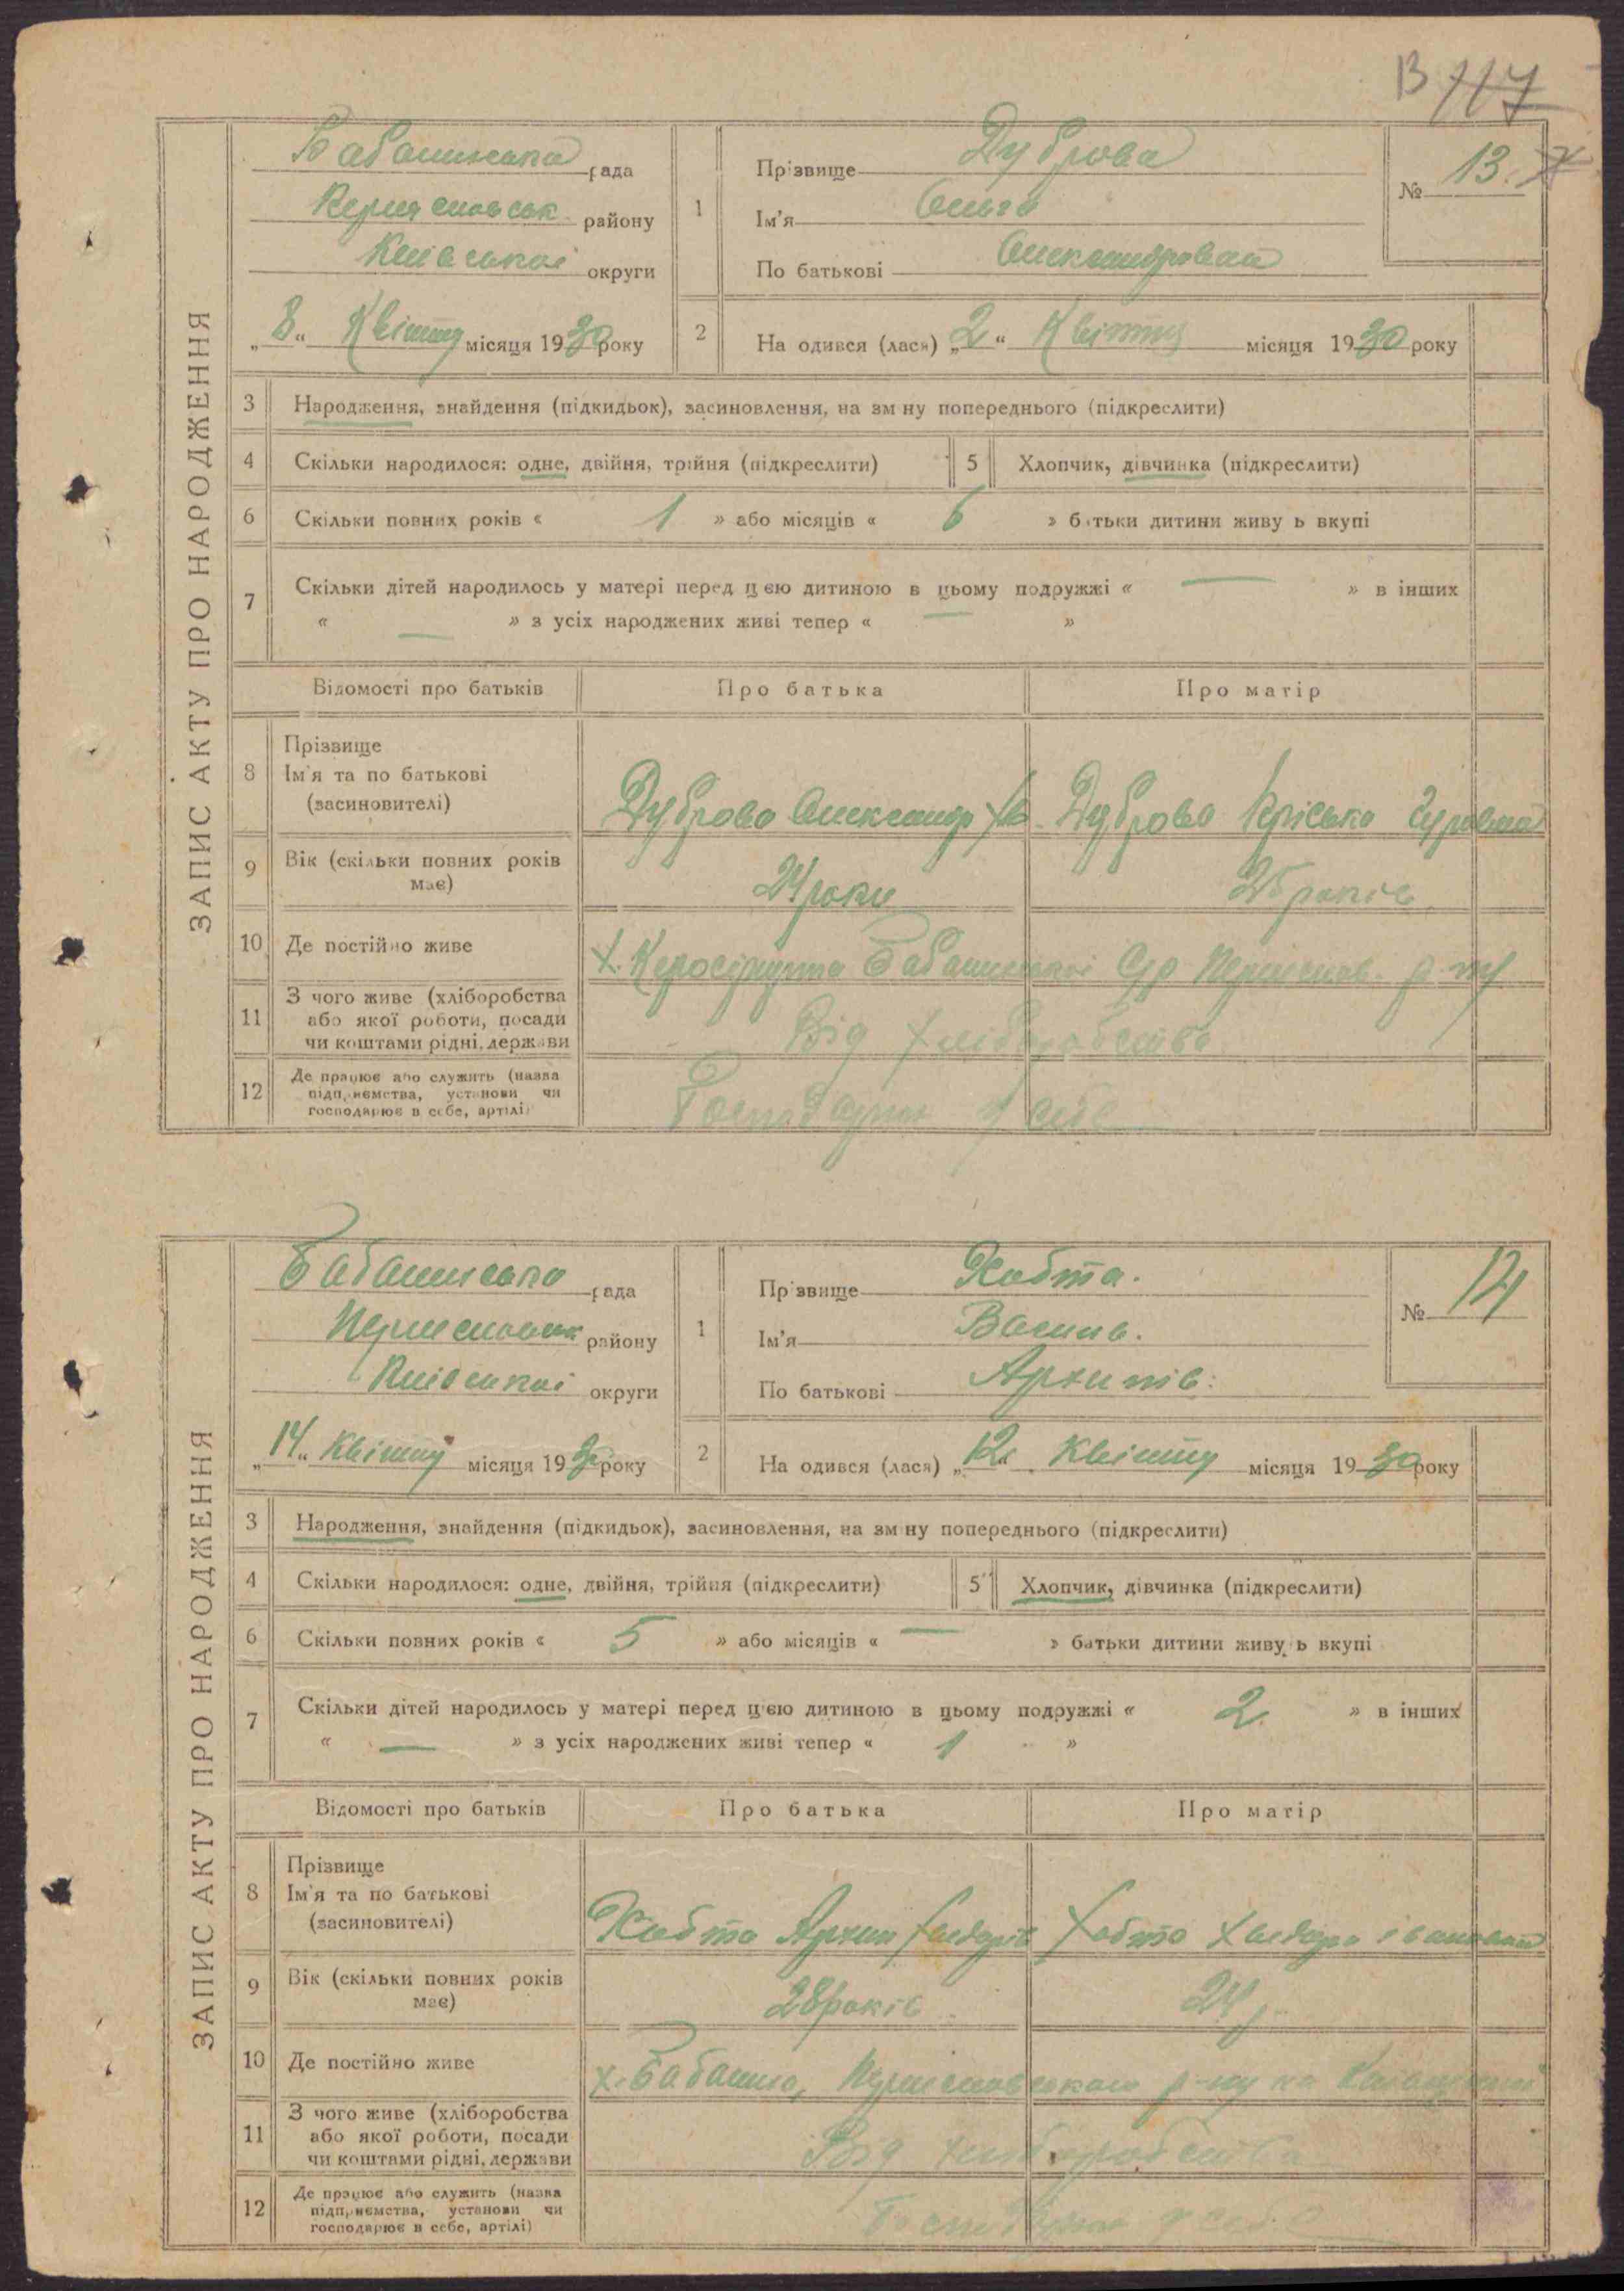 13 117
ЗАПИС АКТУ ПРО НАРОДЖЕННЯ
Бабашинська рада
району
Київської округи
„8“ Квітня місяця 1930 року
1
Прізвище Дуброва
Ім'я Ольга
По батькові Олександровна
№ 13.
2
Народився (лася) „2“ Квітня місяця 1930 року
3 Народження, знайдення (підкидьок), засиновлення, на зміну попереднього (підкреслити)
4 Скільки народилося: одне, двійня, трійня (підкреслити) 5 Хлопчик, дівчинка (підкреслити)
6 Скільки повних років « 1 » або місяців « 6 » батьки дитини живуть вкупі
7 Скільки дітей народилось у матері перед цією дитиною в цьому подружжі « — » в інших
« — » з усіх народжених живі тепер « — »
Відомості про батьків Про батька Про матір
8 Прізвище
Ім'я та по батькові
(засиновителі)
Дуброва Олександр Дуброва
9 Вік (скільки повних років
має)
24 роки 25 років
10 Де постійно живе
х. Бабашинської С/р
11 З чого живе (хліборобства
або якої роботи, посади
чи коштами рідні, держави
Від хліборобства
12 Де працює або служить (назва
підприємства, установи чи
господарює в себе, артілі)
Господарюе у себе
ЗАПИС АКТУ ПРО НАРОДЖЕННЯ
Бабашинська рада
району
Київської округи
„14“ Квітня місяця 1930 року
1
Прізвище Ховта.
Ім'я Василь.
По батькові Архипів.
№ 14
2
Народився (лася) „12“ Квітня місяця 1930 року
3 Народження, знайдення (підкидьок), засиновлення, на зміну попереднього (підкреслити)
4 Скільки народилося: одне, двійня, трійня (підкреслити) 5 Хлопчик, дівчинка (підкреслити)
6 Скільки повних років « 5 » або місяців « — » батьки дитини живуть вкупі
7 Скільки дітей народилось у матері перед цією дитиною в цьому подружжі « 2 » в інших
« — » з усіх народжених живі тепер « 1 »
Відомості про батьків Про батька Про матір
8 Прізвище
Ім'я та по батькові
(засиновителі)
Ховта Архип Ховта
9 Вік (скільки повних років
має)
28 років 24 р.
10 Де постійно живе
х. Бабашино, р-ну на
11 З чого живе (хліборобства
або якої роботи, посади
чи коштами рідні, держави
Від хліборобства
12 Де працює або служить (назва
підприємства, установи чи
господарює в себе, артілі)
Господарюе у себе